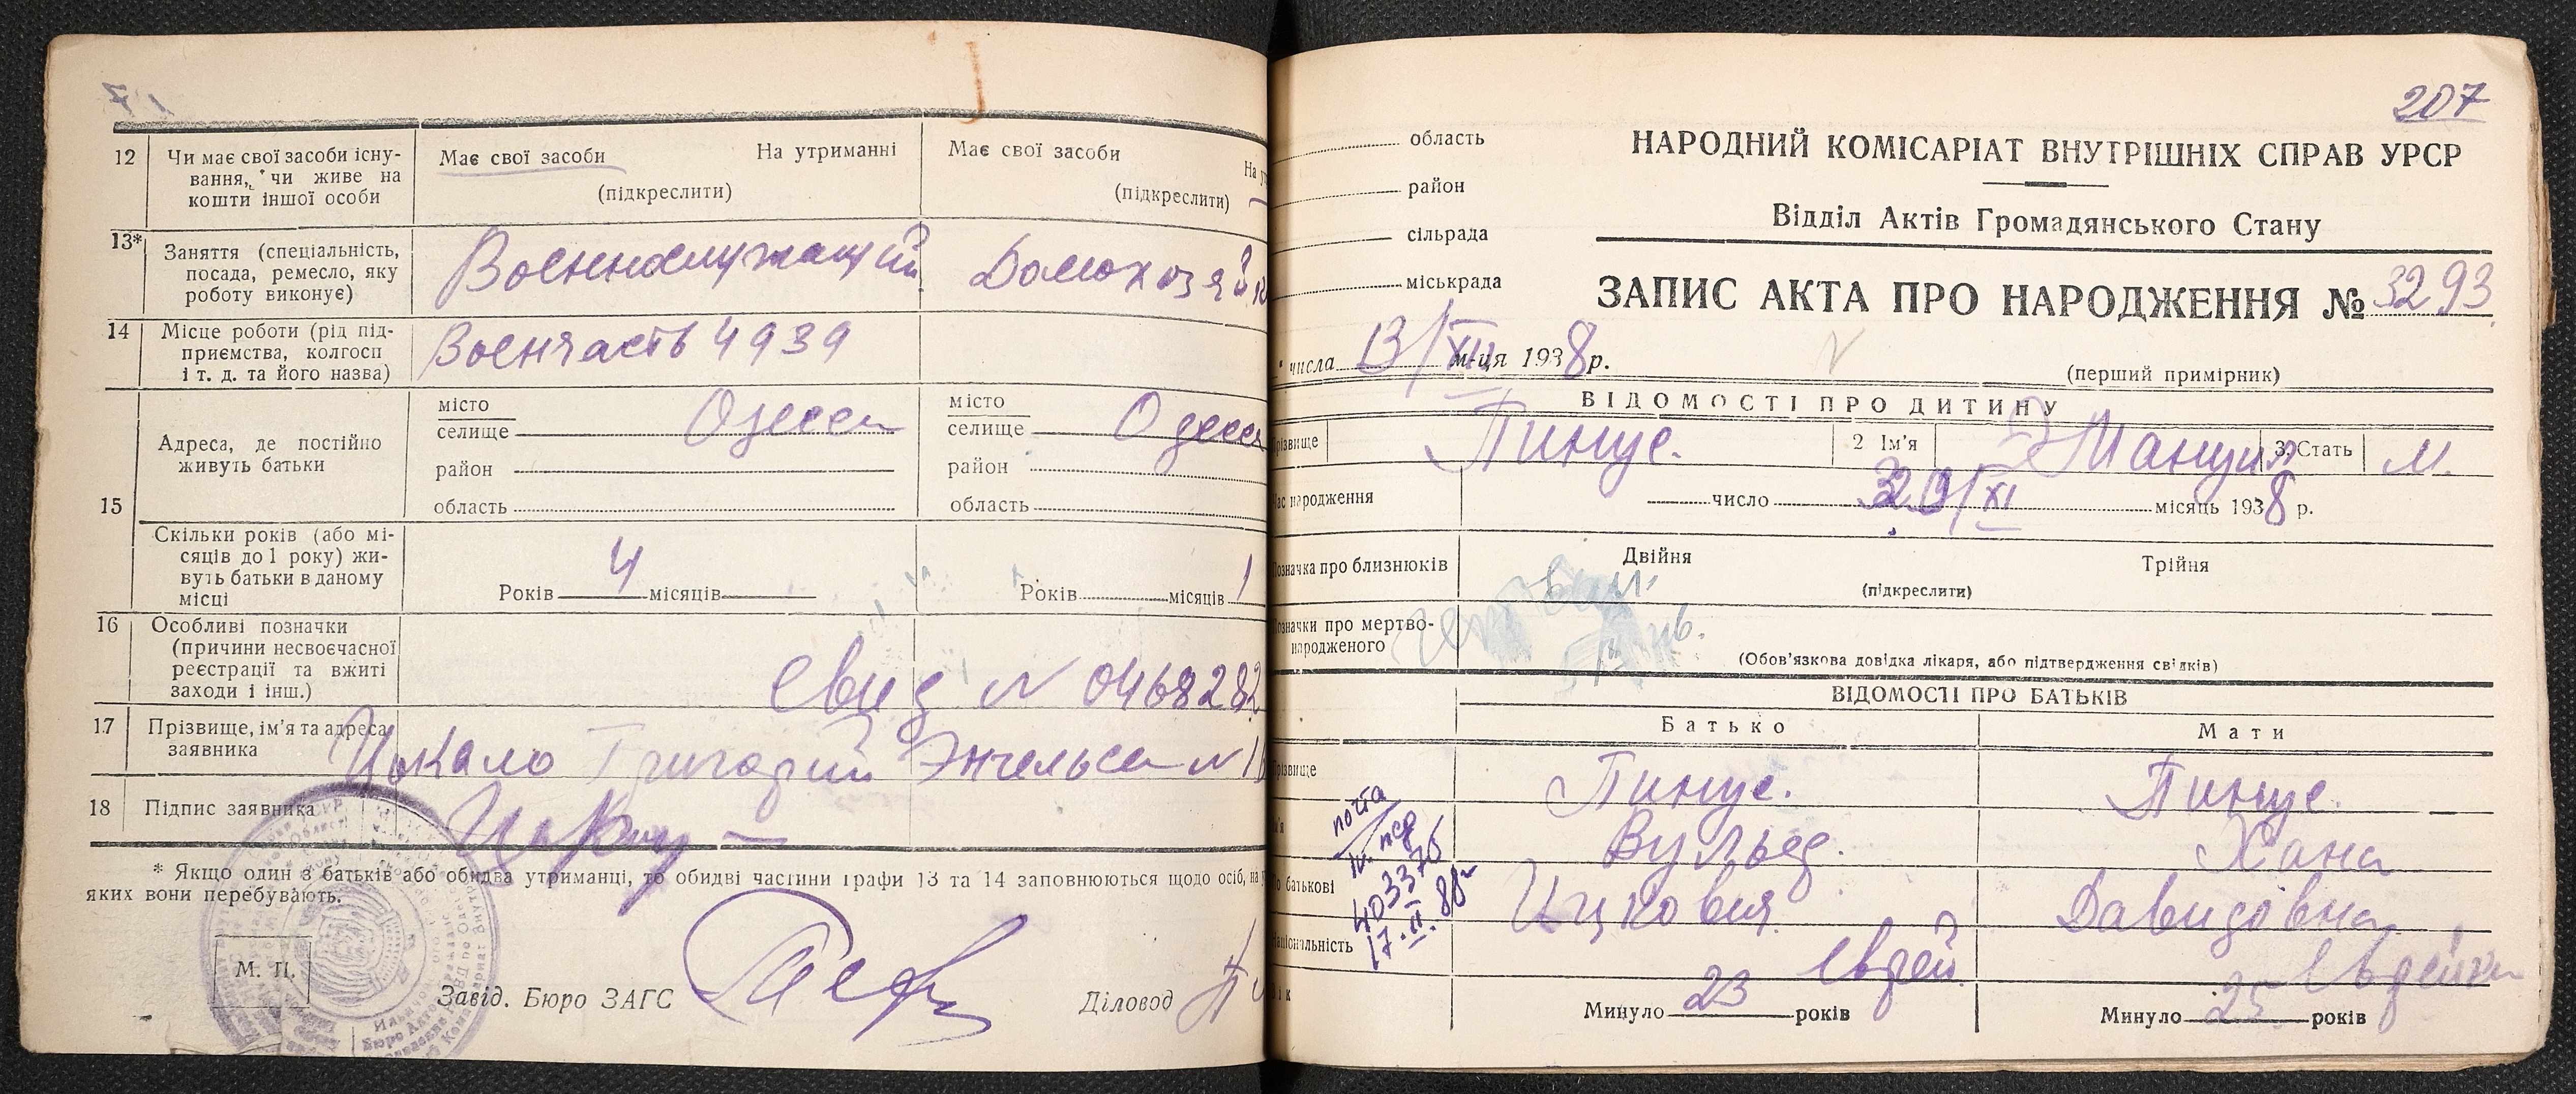 12 Чи має свої засоби існу-
вання, чи живе на
кошти іншої особи
Має свої засоби На утриманні
(підкреслити)
Має свої засоби
(підкреслити)
13* Заняття (спеціальність,
посада, ремесло, яку
роботу виконує)
Военнослужащий
Домохозяйк
14 Місце роботи (рід під-
приємства, колгосп
і т. д. та його назва)
Военчасть 4939
15 Адреса, де постійно
живуть батьки
місто
селище Одесса
район
область
місто
селище Одесса
район
область
Скільки років (або мі-
сяців до 1 року) жи-
вуть батьки в даному
місці
Років 4 місяців
Років місяців 1
16 Особливі позначки
(причини несвоєчасної
реєстрації та вжиті
заходи і інш.)
Свид N 0468282
17 Прізвище, ім'я та адреса
заявника
Цокало Григорий Энгельса N
18 Підпис заявника
* Якщо один з батьків або обидва утриманці, то обидві частини графи 13 та 14 заповнюються щодо осіб, на
яких вони перебувають.
М. П.
Завід. Бюро ЗАГС
Діловод
207
область
район
сільрада
міськрада
НАРОДНИЙ КОМІСАРІАТ ВНУТРІШНІХ СПРАВ УРСР
Відділ Актів Громадянського Стану
ЗАПИС АКТА ПРО НАРОДЖЕННЯ № 3293
числа 13/XII м-ця 1938 р.
(перший примірник)
ВІДОМОСТІ ПРО ДИТИНУ
різвище Пинус. 2 Ім'я Эмануил 3 Стать М.
ас народження число /XI місяць 1938 р.
означка про близнюків Двійня Трійня
(підкреслити)
означки про мертво-
народженого
(Обов'язкова довідка лікаря, або підтвердження свідків)
ВІДОМОСТІ ПРО БАТЬКІВ
Батько Мати
різвище Пинус. Пинус.
м'я Вульф. Хана
о батькові Ицкович Давидовна
аціональність еврей еврейка
ік Минуло 23 років Минуло 25 років
почта
403375
17.II.88г